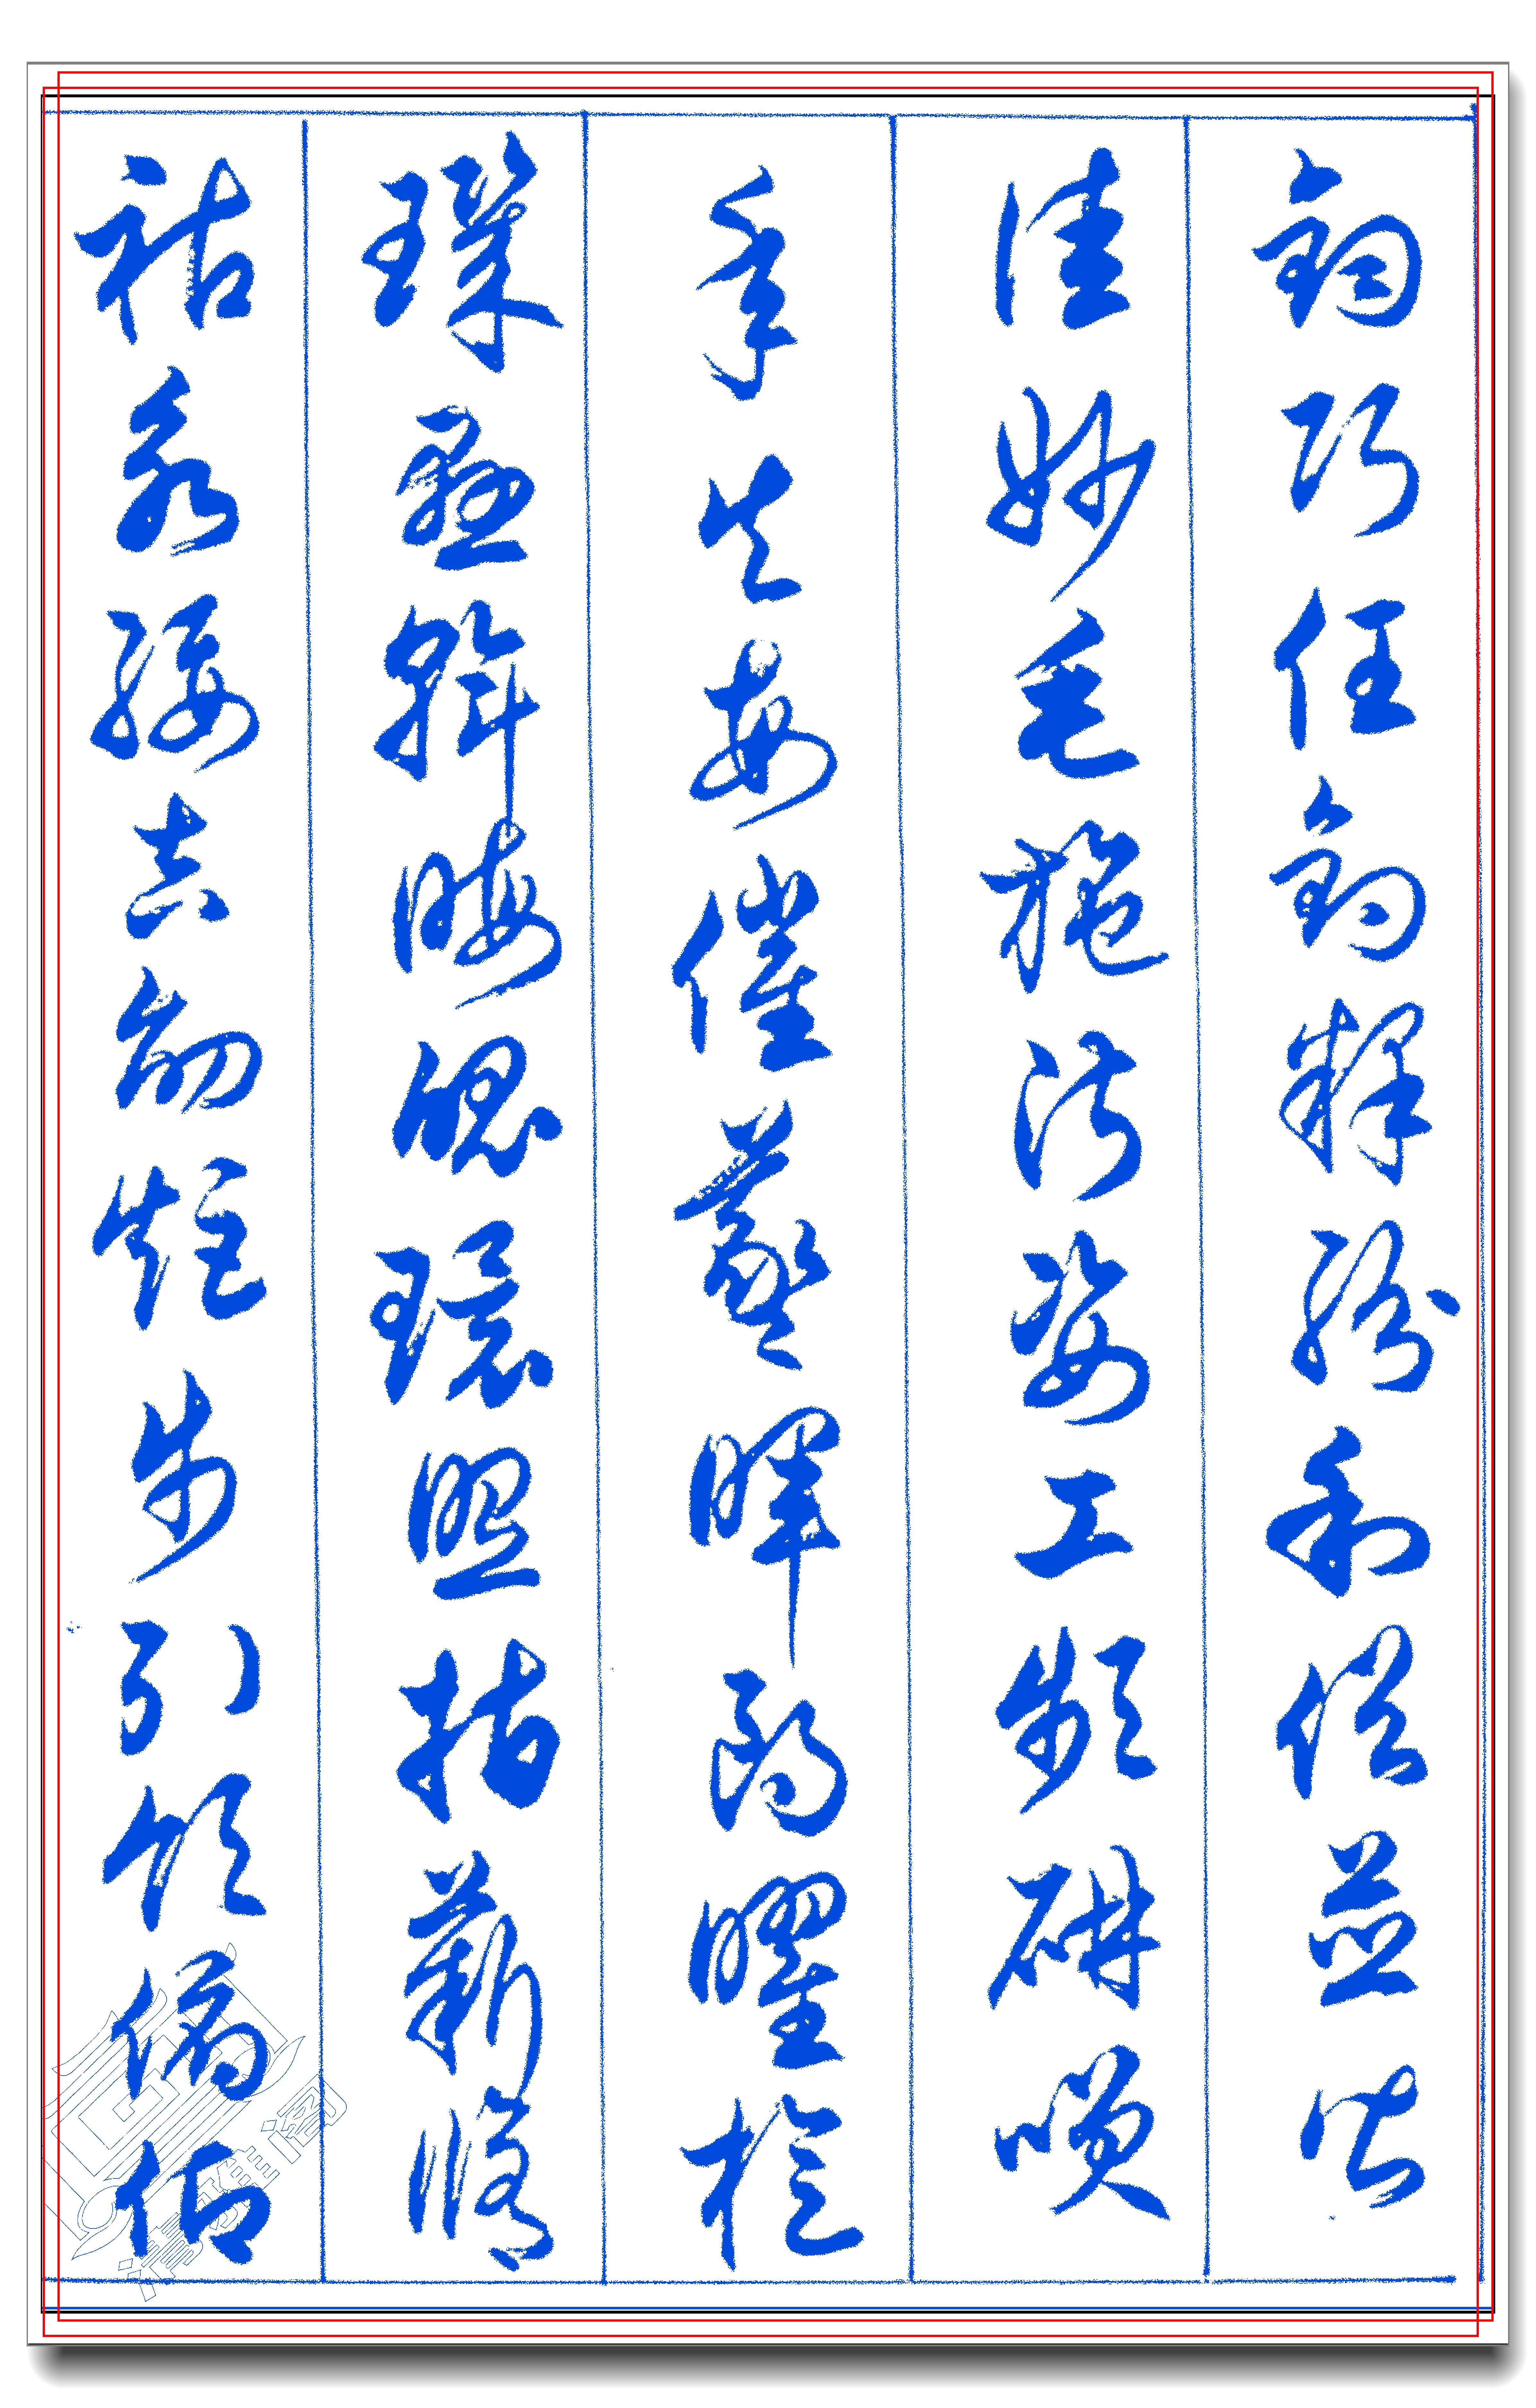 鈞巧任釣釋紛利俗並皆
佳妙毛施淑姿工顰研笑
年矢每催羲暉朗曜旋
璣懸斡晦魄環照指薪修
祜永綏吉劭矩步引領俯